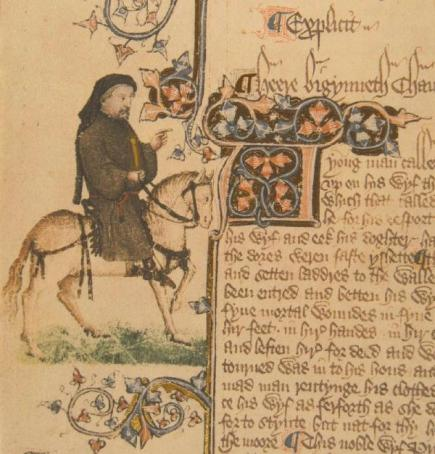 ¶ Explicit
¶ Heere bigynneth Chau
A
yong man calle
vp on his wyf th
which that called
he for his desport
his wyf and eek his doghter ha
the dores weren faste yshette
and setten laddres to the walle
been entred and betten his wy
fyue mortal woundes in fyue
hir feet in hir handes in hir e
and leften hir for deed and w
tourned was in to his hous and
mad man rentynge his clothes
ce his wyf as ferforth as she d
for to stynte but nat for thy h
the moore ¶ This noble wyf